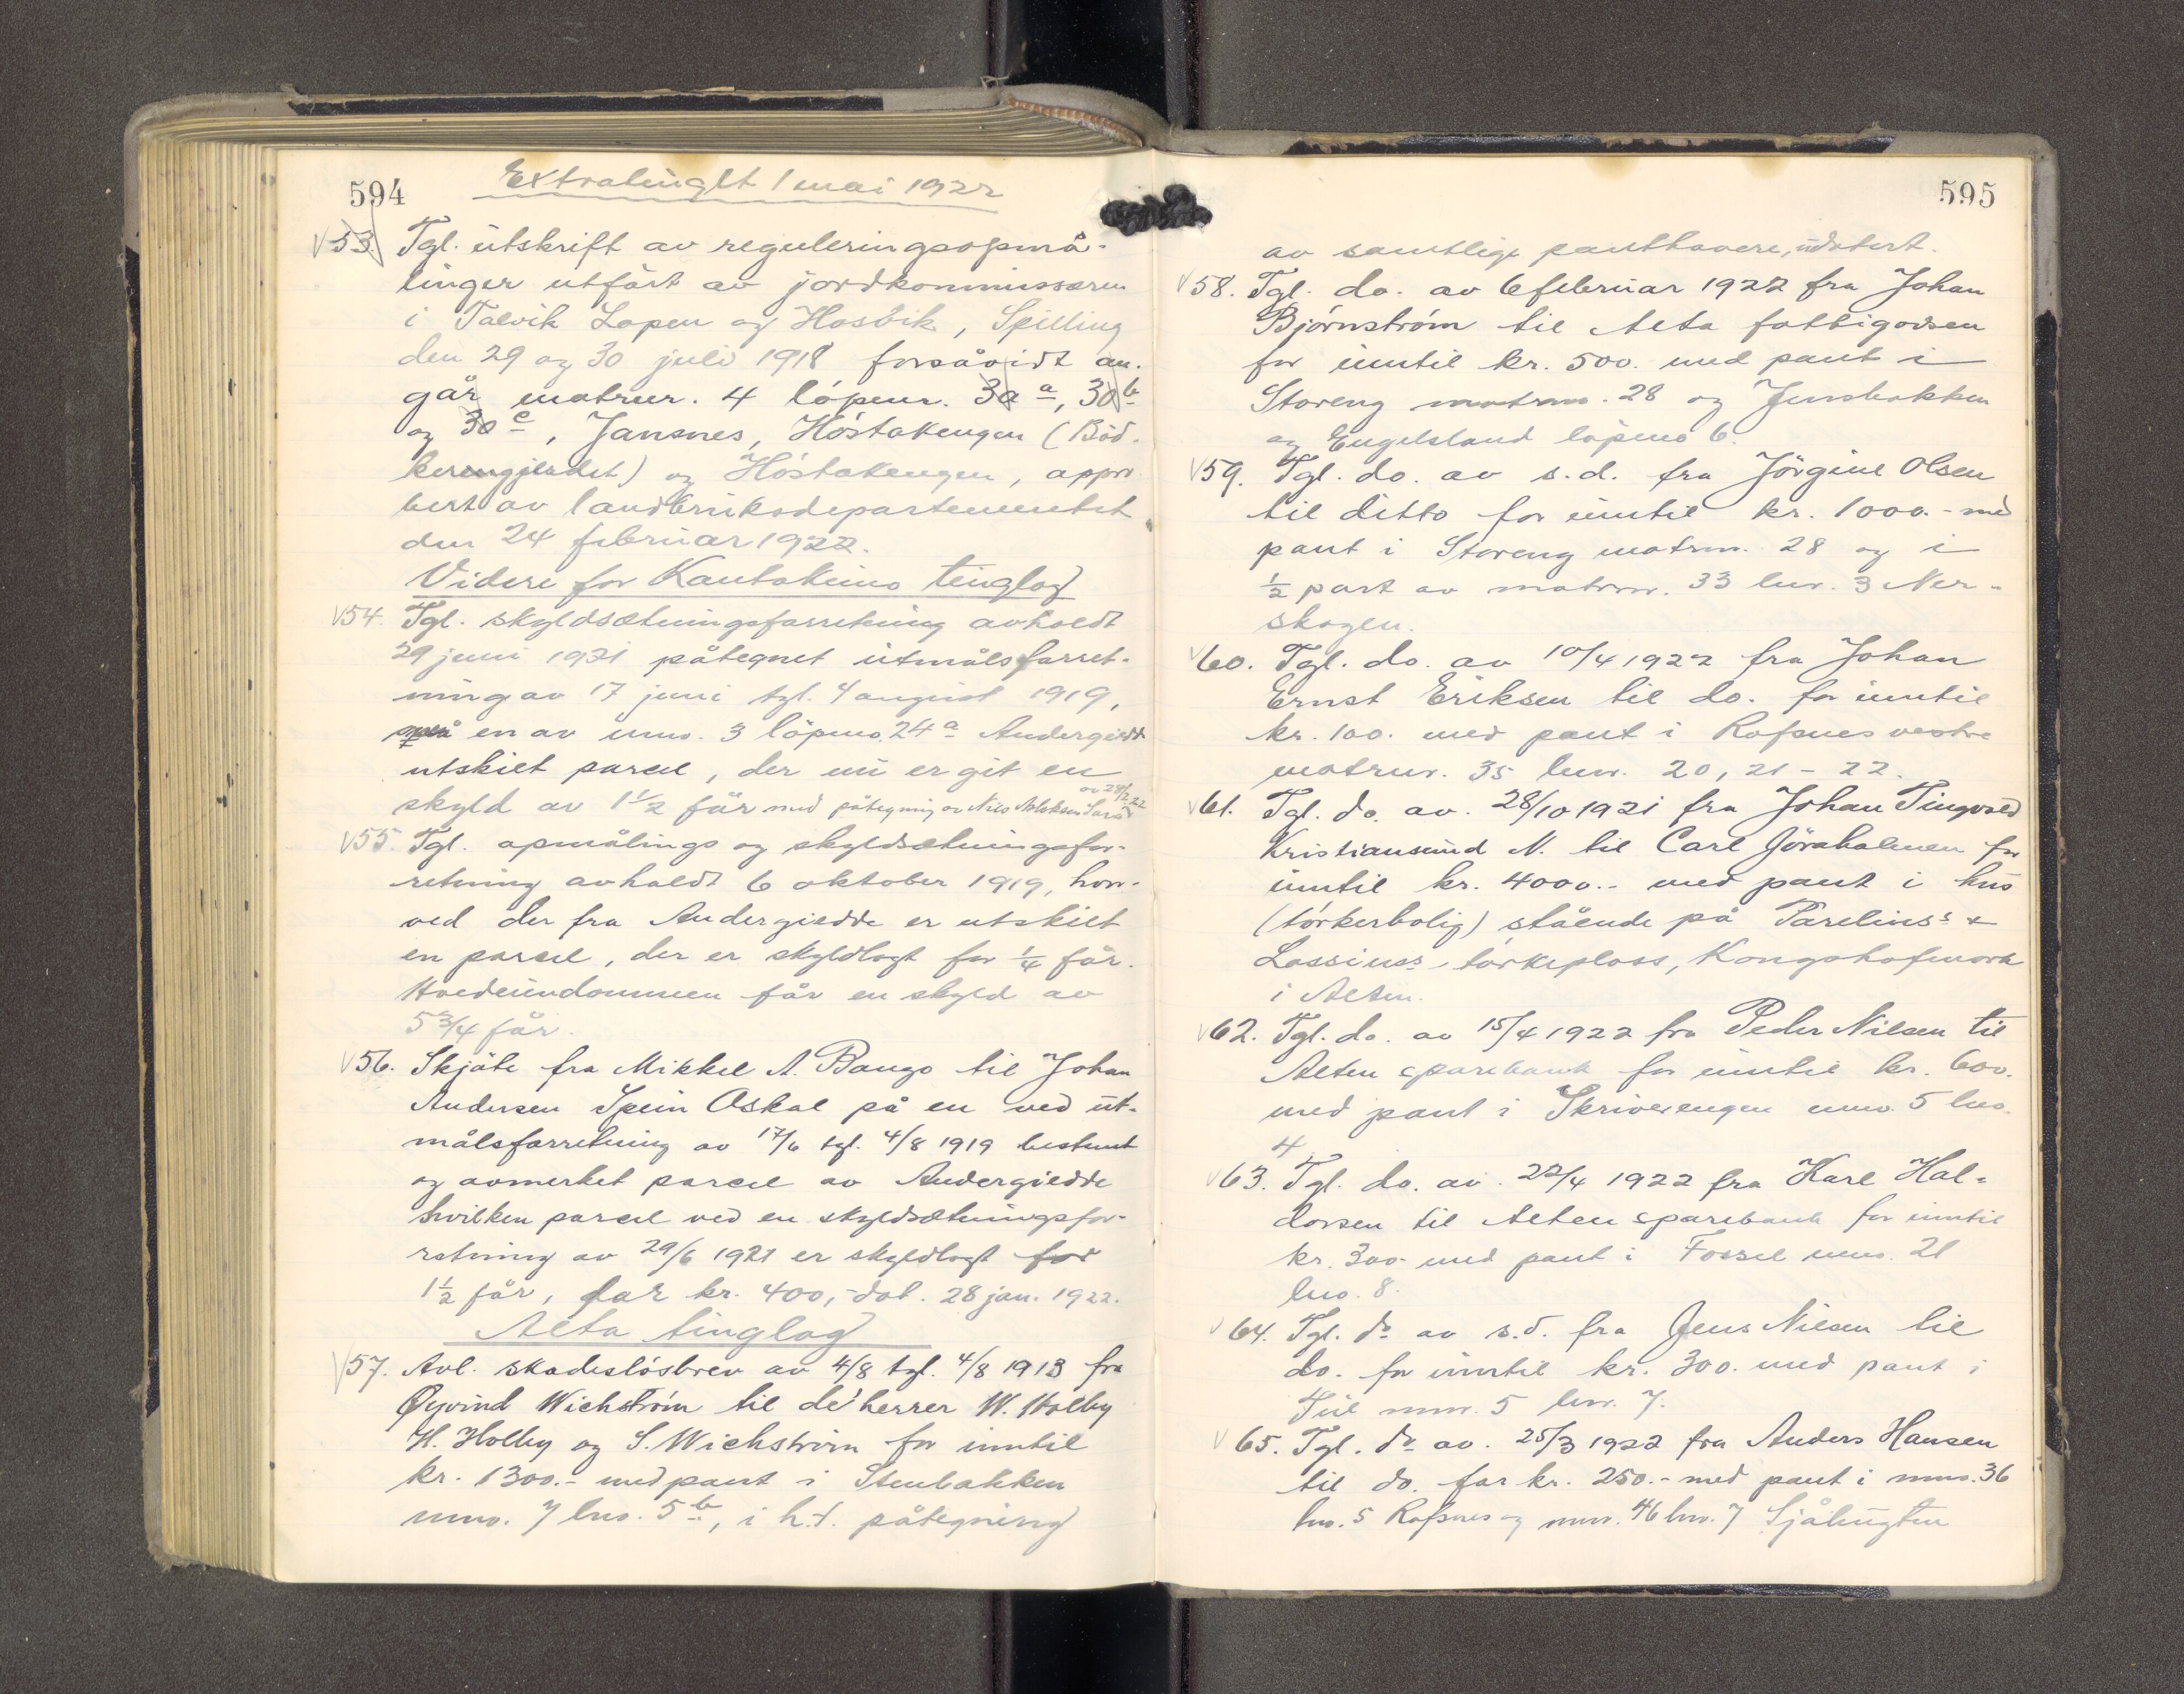 594
Extratinglt 1 mai 1922
V53. Tgl. utskrift av reguleringsopmå-
linger utført av jordkommissæren
i Talvik Lopen og Hosbik, Spilling
den 29 og 30 juli 1918 forsåvidt an-
går matrnr. 4 löpenr. 30 a, 30 b
og 30 c, Jansnes, Höstakengen (Böd-
kerengjerdet) og Höstakengen, appro-
bert av landbruksdepartementet
den 24 februar 1922.
Videre for Kautokeino tinglag
V54. Tgl. skyldsætningsforretning avholdt
29 juni 1921 påtegnet utmålsforret-
ning av 17 juni tgl. 4 august 1919,
på en av mno. 3 löpeno. 24 a Andergiedde
utskilt parcel, der nu er git en
skyld av 1 1/2 før med påtegning av Nils Aslaksen Sara av 28/2 22
V55. Tgl. opmålings og skyldsætningsfor-
retning avholdt 6 oktober 1919, hvor-
ved der fra Andergiedde er utskilt
en parcel, der er skyldlagt for 1/4 før.
Hovedeiendommen får en skyld av
5 3/4 før.
V56. Skjöte fra Mikkel A. Bango til Johan
Andersen Spein Oskal på en ved ut-
målsforretning av 17/6 tgl. 4/8 1919 bestemt
og avmerket parcel av Andergiedde
hvilken parcel ved en skyldsætningsfor-
retning av 29/6 1921 er skyldlagt for
1 1/2 før, for kr. 400,- dat. 28 jan. 1922.
Alta tinglag
V57. Avl. skadeslösbrev av 4/8 tgl. 4/8 1913 fra
Øyvind Wichström til de herrer W. Holby
H. Holby og S. Wichström for inntil
kr. 1300.- med pant i Stenbakken
mno. 7 lno. 5 b, i h.t. påtegning
595
av samtlige panthavere, udatert.
V58. Tgl. do. av 6 februar 1922 fra Johan
Björnström til Alta fattigvæsen
for inntil kr. 500. med pant i
Storeng matrno. 28 og Jensbakken
og Engelsland löpeno 6.
V59. Tgl. do. av s.d. fra Jörgine Olsen
til ditto for inntil kr. 1000.- med
pant i Storeng matrno. 28 og i
1/2 part av matrnr. 33 lnr. 3 Ner-
skogen.
V60. Tgl. do. av 10/4 1922 fra Johan
Ernst Eriksen til do. for inntil
kr. 100. med pant i Rafsnes vestre
matrnr. 35 lnr. 20, 21 - 22.
V61. Tgl. do. av. 28/10 1921 fra Johan Tingvold
Kristiansund N. til Carl Göraholmen for
inntil kr. 4000.- med pant i hus
(törkerbolig) stående på Parelius's &
Lossius's törkeplass, Kongshofmark
i Alten.
V62. Tgl. do. av 15/4 1922 fra Peder Nilsen til
Alten sparebank for inntil kr. 600.
med pant i Skriverengen mno. 5 lno.
4
V63. Tgl. do. av. 22/4 1922 fra Karl Hal-
dorsen til Alten sparebank for inntil
kr. 300- med pant i Fossel mno. 21
lno. 8.
V64. Tgl. do av s.d. fra Jens Nilsen til
do. for inntil kr. 300. med pant i
mnr. 5 lnr. 7.
V65. Tgl. do av. 25/3 1922 fra Anders Hansen
til do. for kr. 250.- med pant i mno. 36
lno. 5 Rafsnes og mnr. 46 lnr. 7